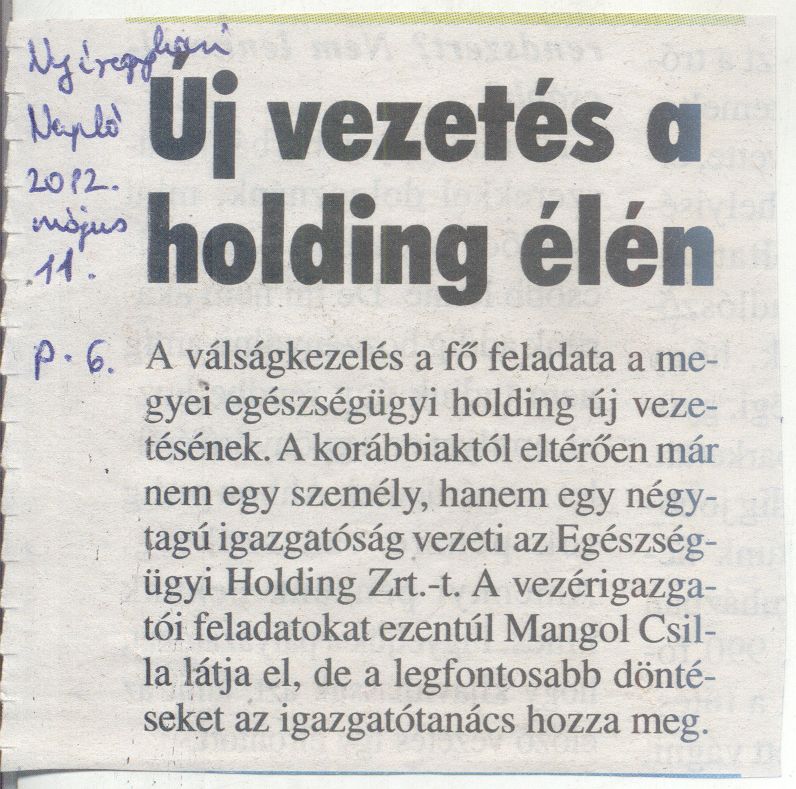 Nyíregyházi
Napló
2012.
május
11.
p. 6.
Új vezetés a
holding élén
A válságkezelés a fő feladata a me-
gyei egészségügyi holding új veze-
tésének. A korábbiaktól eltérően már
nem egy személy, hanem egy négy-
tagú igazgatóság vezeti az Egészség-
ügyi Holding Zrt.-t. A vezérigazga-
tói feladatokat ezentúl Mangol Csil-
la látja el, de a legfontosabb dönté-
seket az igazgatótanács hozza meg.